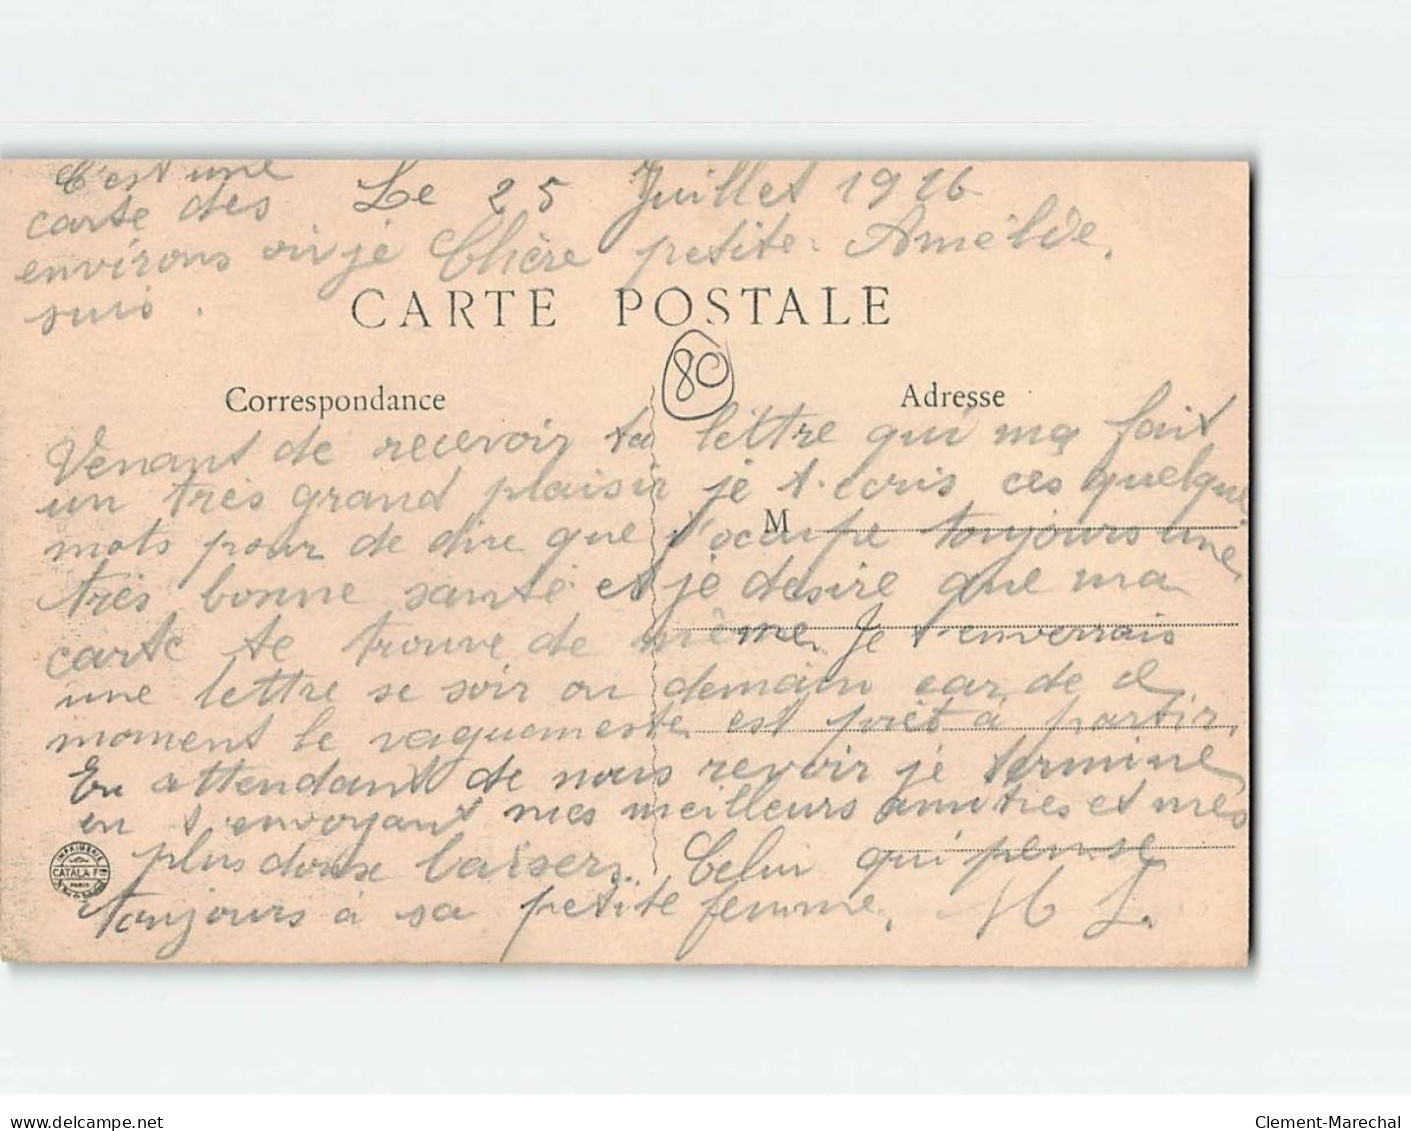 C'est une
carte des
environs où je
suis.
Le 25 Juillet 1916
Chère petite Amélie,
CARTE POSTALE
80
Correspondance
Adresse
M
Venant de recevoir ta lettre qui ma fait
un très grand plaisir je t'écris ces quelque
mots pour de dire que j'occupe toujours une
très bonne santé et je desire que ma
carte te trouve de même. Je t'enverrais
une lettre se soir ou demain car de ce
moment le vaguemestre est prêt à partir.
En attendant de nous revoir je termine
en t'envoyant mes meilleurs amitiés et mes
plus doux baisers. Celui qui pense
toujours à sa petite femme. H L.
IMPRIMERIE
CATALA Fres
PARIS
www.delcampe.net
Clement-Marechal